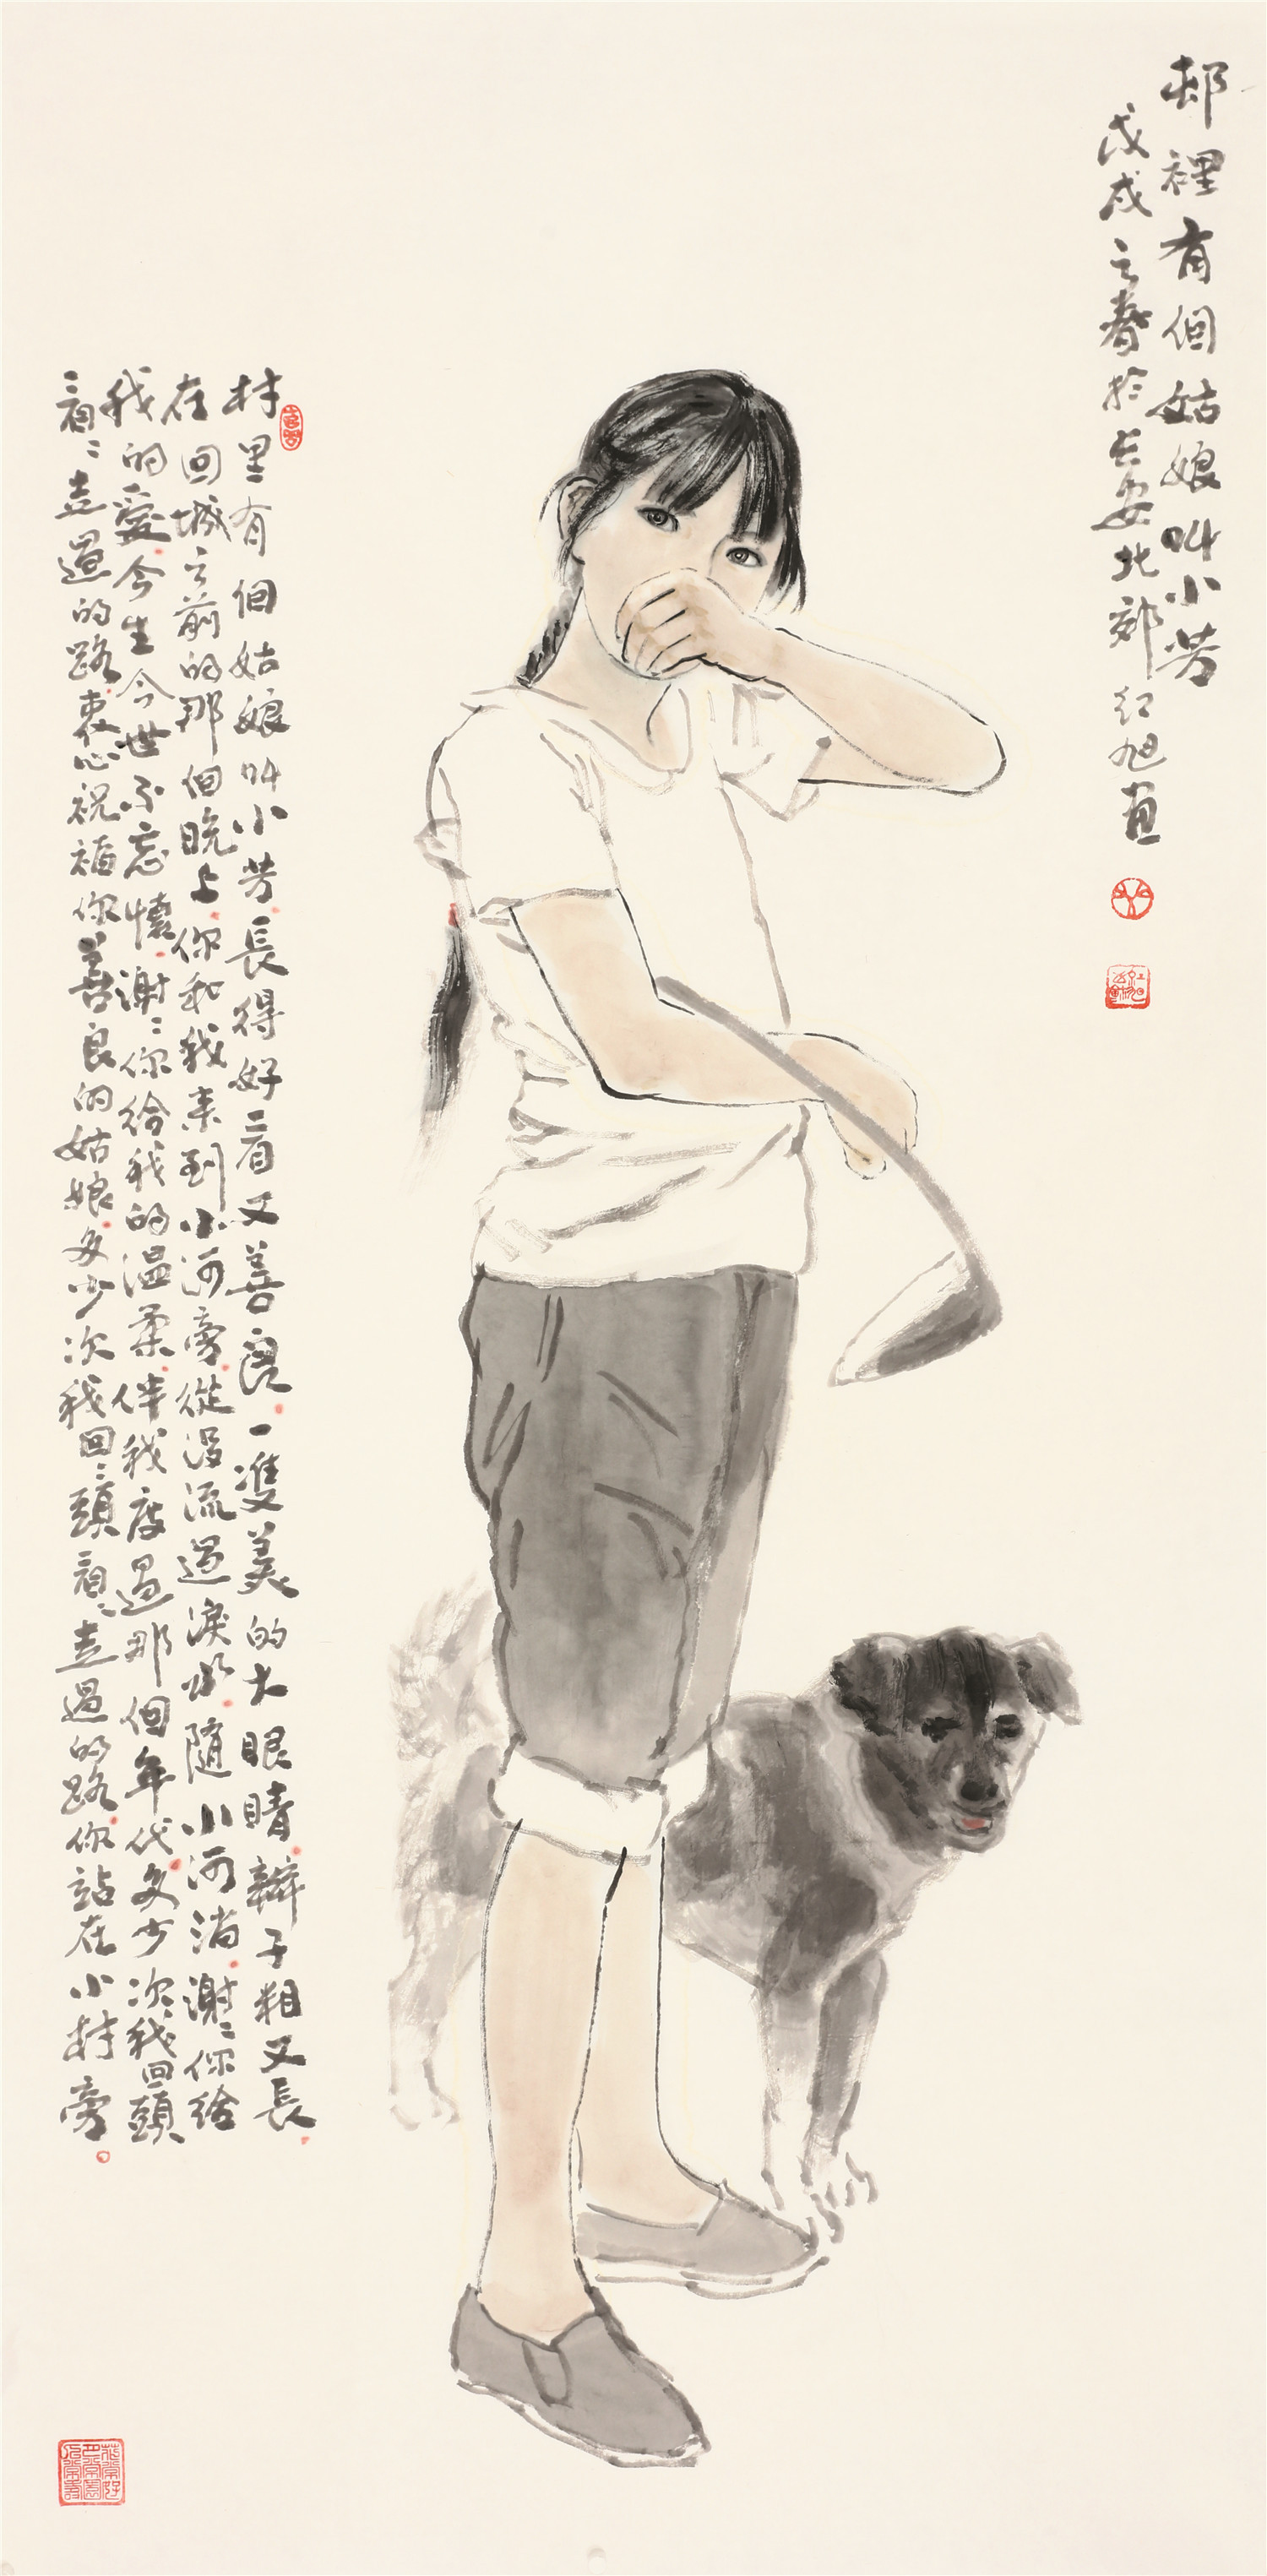 邨裡有個姑娘叫小芳
戊戌之春於長安北郊紅旭畫
村里有個姑娘叫小芳長得好看又善良一雙美的大眼睛辮子粗又長
在回城之前的那個晚上你和我來到小河旁從沒流過淚水隨小河淌謝〻你給
我的愛今生今世不忘懷謝〻你給我的温柔伴我度過那個年代多少次我回頭
看〻走過的路衷心祝福你善良的姑娘多少次我回〻頭看〻走過的路你站在小村旁